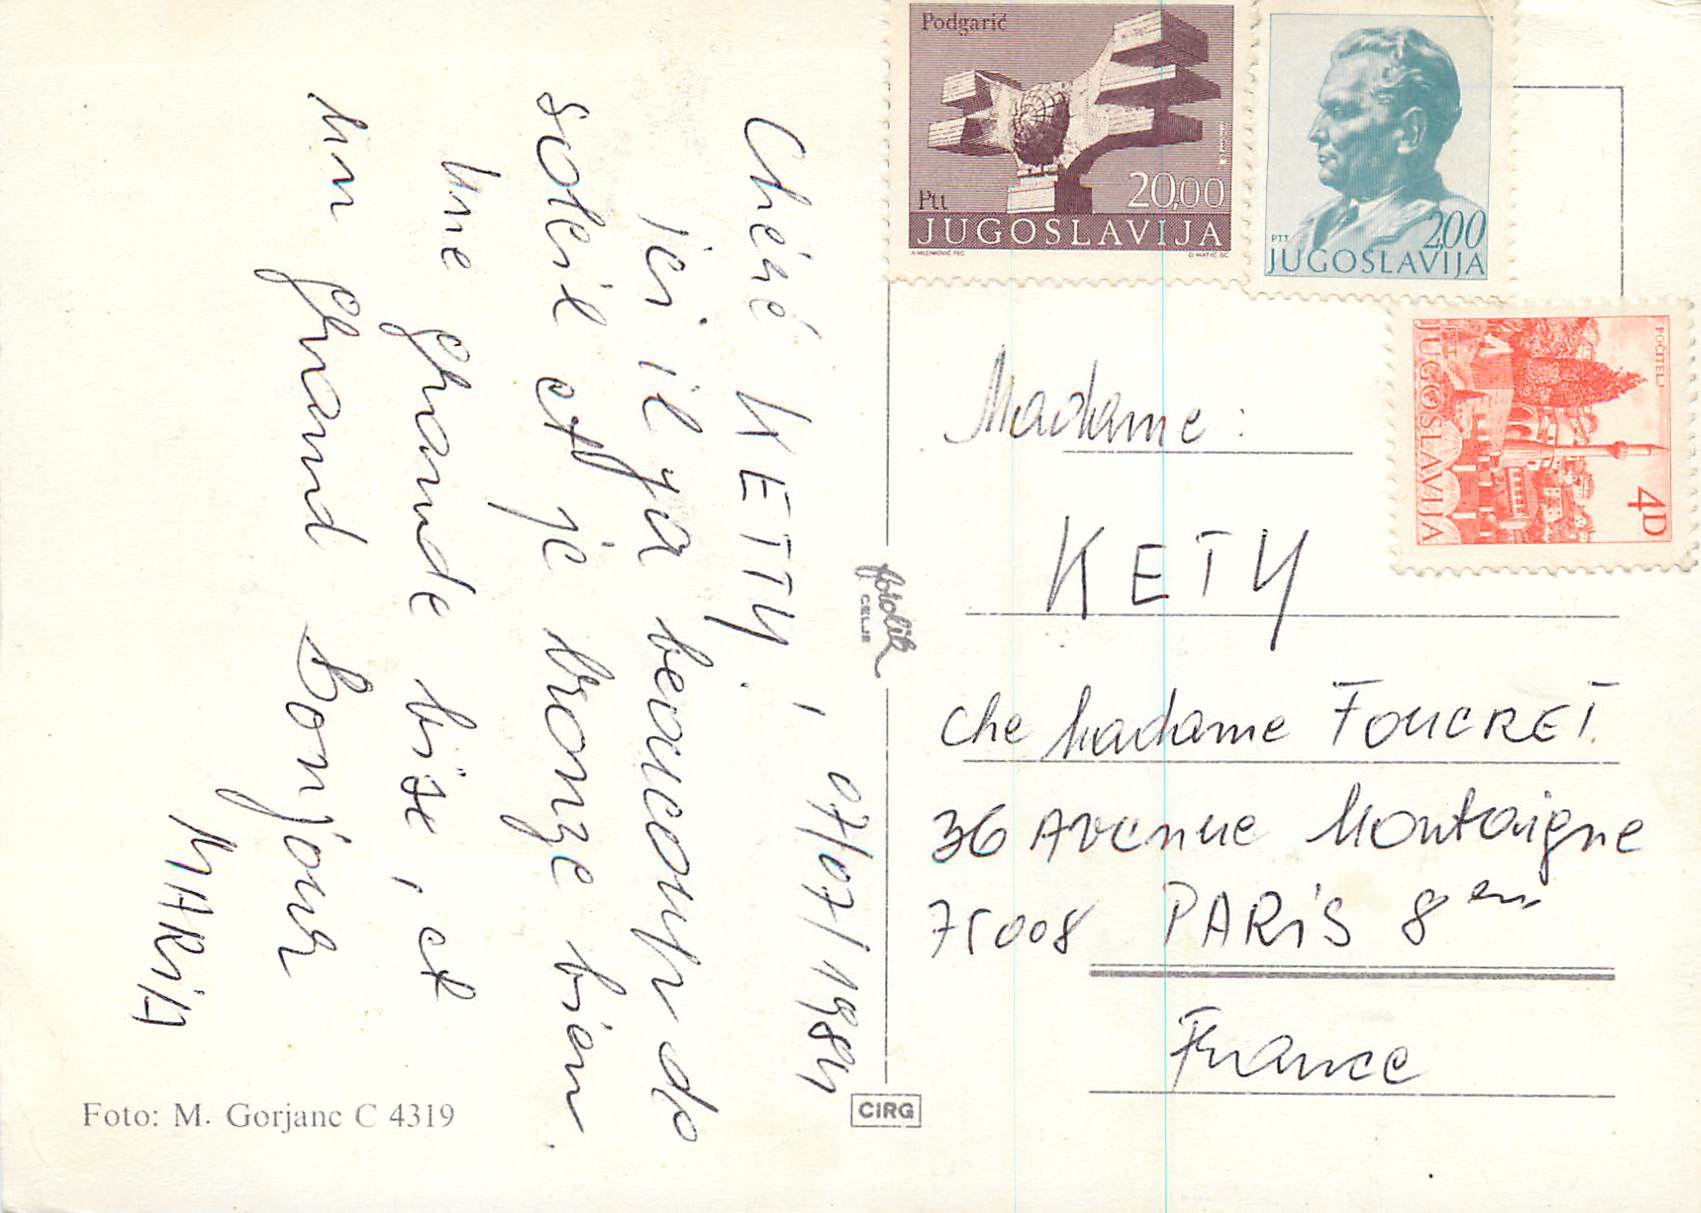 Podgarić
Ptt
20,00
JUGOSLAVIJA
PTT
2,00
JUGOSLAVIJA
POČITELJ
4D
JUGOSLAVIJA
07/07/1984
Chéné KETTY,
ici il ya beaucoup do
soleil et je bronze bien.
Une grande bise, et
un grand Bonjour
MARiA
Madame:
KETY
che Madame FOUCRET.
36 Avenue Montaigne
75008 PARiS 8em
France
fotolik
CELJE
CIRG
Foto: M. Gorjanc C 4319